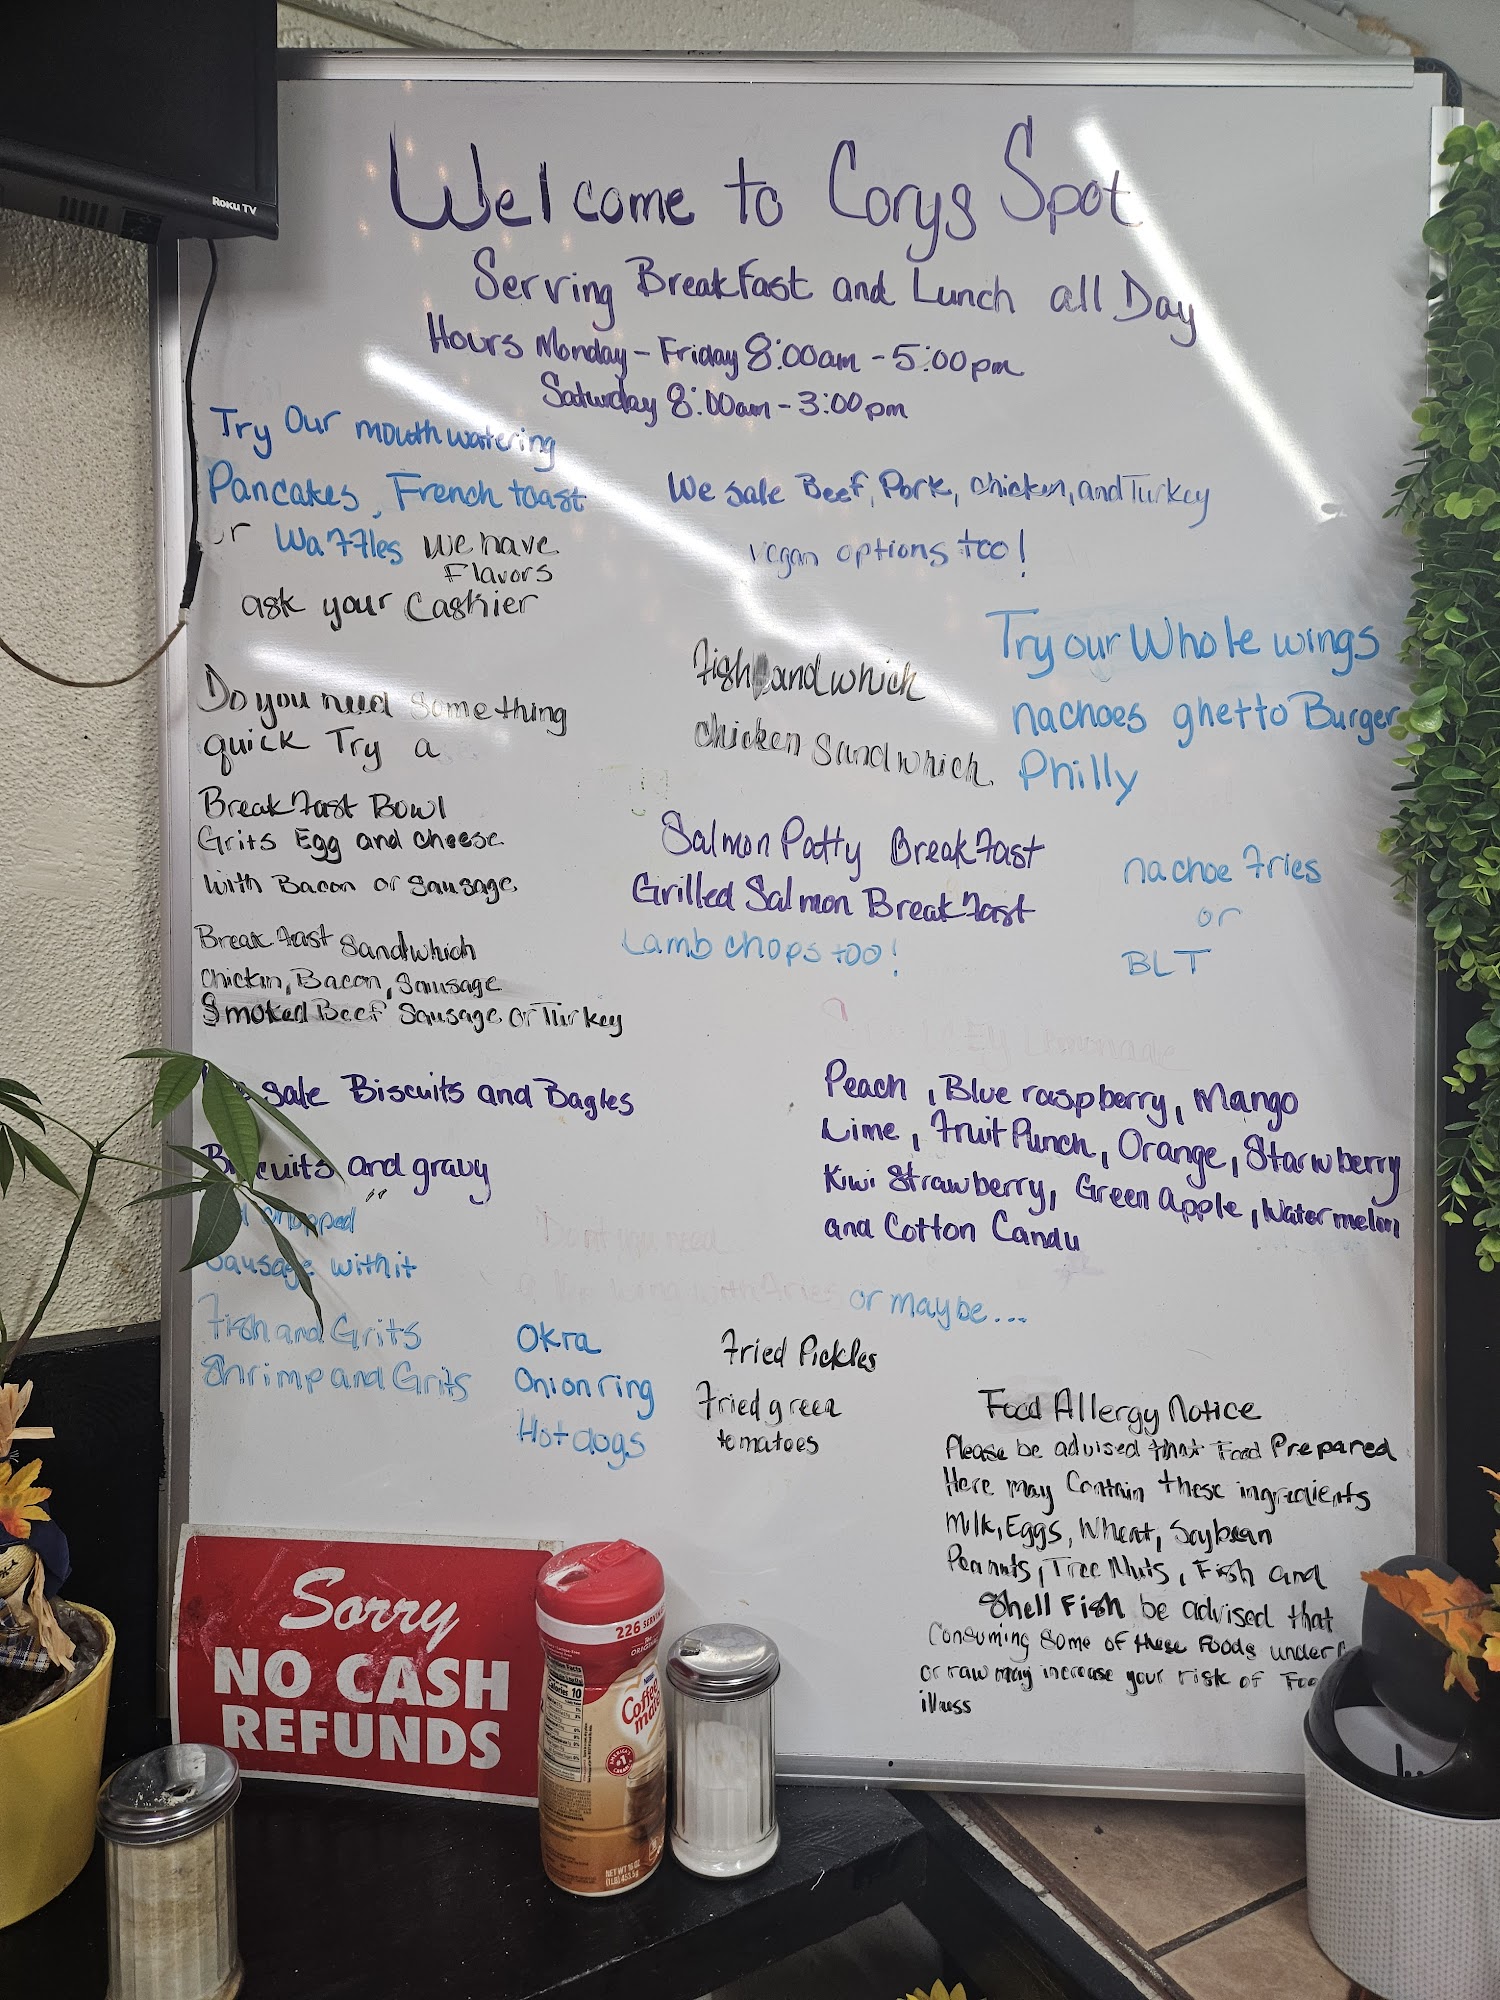 ROKU TV
Welcome to Corys Spot
Serving BreakFast and Lunch all Day
Hours Monday - Friday 8:00am - 5:00pm
Saturday 8:00am - 3:00pm
Try Our mouth watering
Pancakes, French toast
Waffles we have
Flavors
ask your Cashier
We sale Beef, Pork, chicken, and Turkey
vegan options too!
Do you need something
quick Try a
BreakFast Bowl
Grits Egg and cheese
with Bacon or Sausage
BreakFast Sandwhich
Chicken, Bacon, Sausage
Smoked Beef Sausage or Turkey
sale Biscuits and Bagles
Biscuits and gravy
chopped
Sausage with it
Fish and Grits
Shrimp and Grits
Fish andwhich
chicken Sandwhich
Try our Whole wings
nachoes ghetto Burger
Philly
Salmon Patty BreakFast
Grilled Salmon BreakFast
Lamb chops too!
nachoe Fries
or
BLT
Lemonade
Peach, Blue raspberry, Mango
Lime, Fruit Punch, Orange, Starwberry
Kiwi Strawberry, Green Apple, Watermelon
and Cotton Candy
with Fries or maybe...
Okra
Onion ring
Hotdogs
Fried Pickles
Fried green
tomatoes
Food Allergy Notice
Please be advised that Food Prepared
Here may Contain these ingredients
Milk, Eggs, Wheat, Soybean
Peanuts, Tree Nuts, Fish and
Shell Fish be advised that
Consuming Some of these Foods under
or raw may increase your risk of Foo
illness
Sorry
NO CASH
REFUNDS
226 SERVINGS
Calories 10
Coffee
mate
NET WT 16 OZ
(1 LB) 453.5g